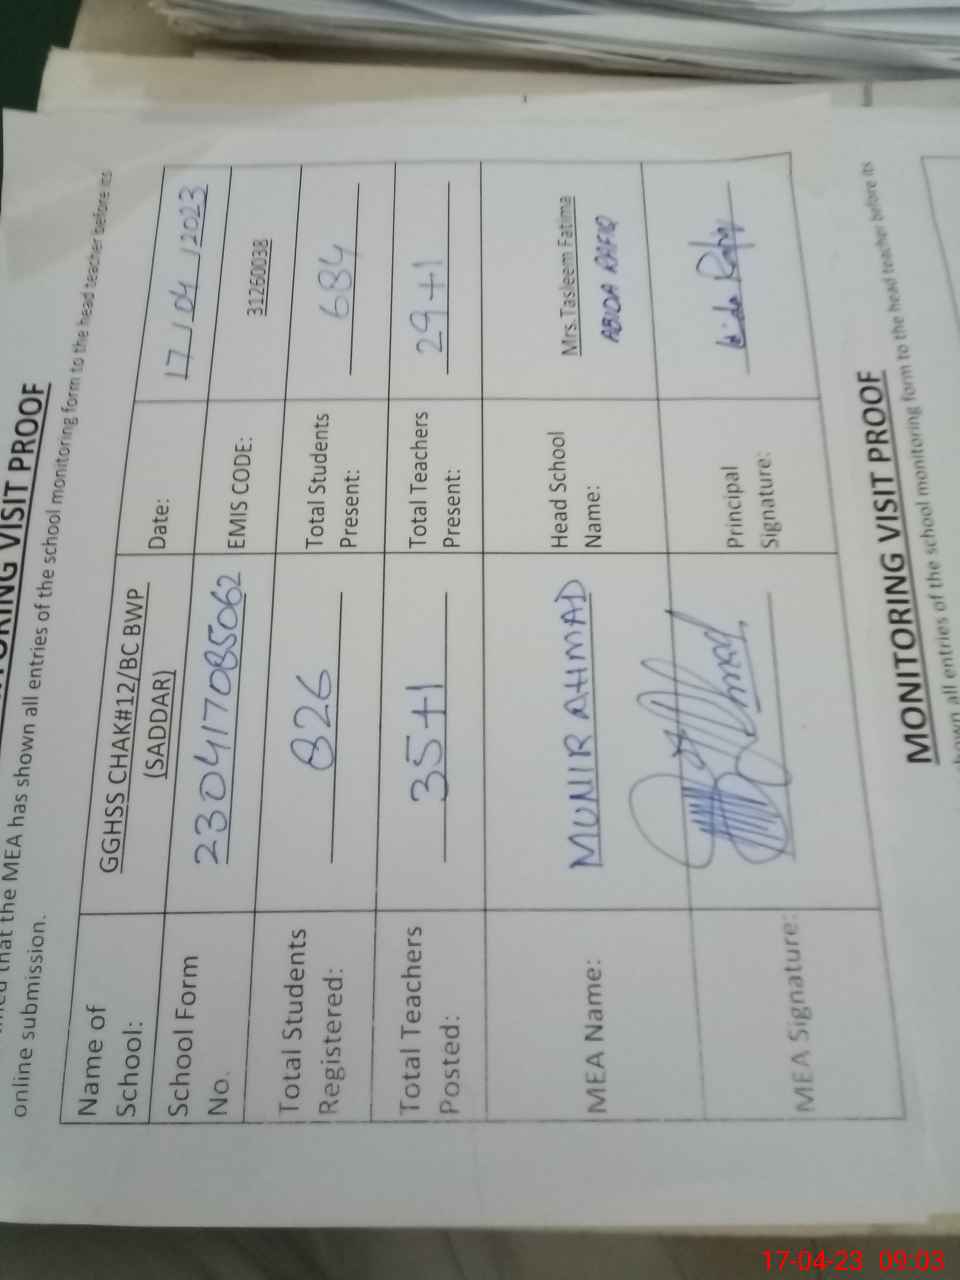 MONITORING VISIT PROOF
that the MEA has shown all entries of the school monitoring form to the head teacher before its
online submission.
Name of School: GGHSS CHAK#12/BC BWP (SADDAR) Date: 17/04/2023
School Form No. 230417085062 EMIS CODE: 31260038
Total Students Registered: 826 Total Students Present: 684
Total Teachers Posted: 35+1 Total Teachers Present: 29+1
MEA Name: MUNIR AHMAD Head School Name: Mrs.Tasleem Fatima
ABIDA RAFIQ
MEA Signature: Principal Signature:
MONITORING VISIT PROOF
shown all entries of the school monitoring form to the head teacher before its
17-04-23 09:03